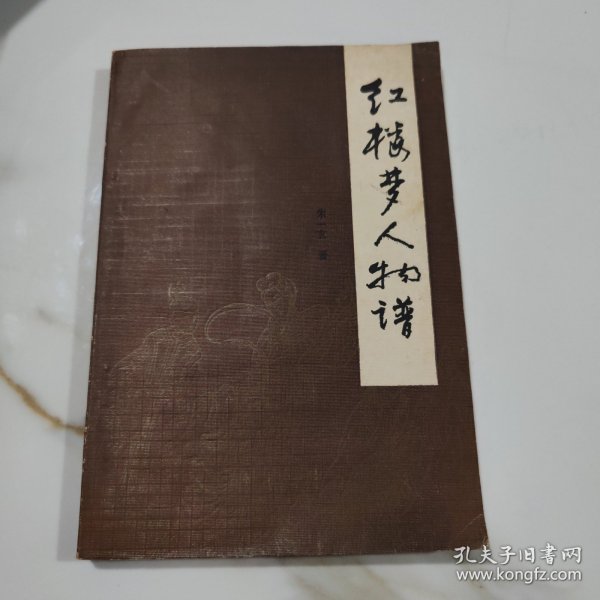 红楼梦人物谱
朱一玄 著
孔夫子旧书网
www.kongfz.com